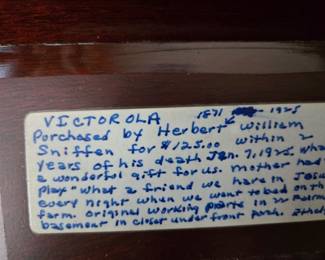 VICTOROLA 1871 - 1925
Purchased by Herbert William
Sniffen for $125.00 within 2
years of his death Jan. 7, 1925. What
a wonderful gift for us. Mother had it
play "What a friend we have in Jesus
every night when we went to bed on the
farm. Original working parts in 22
basement in closet under front porch.